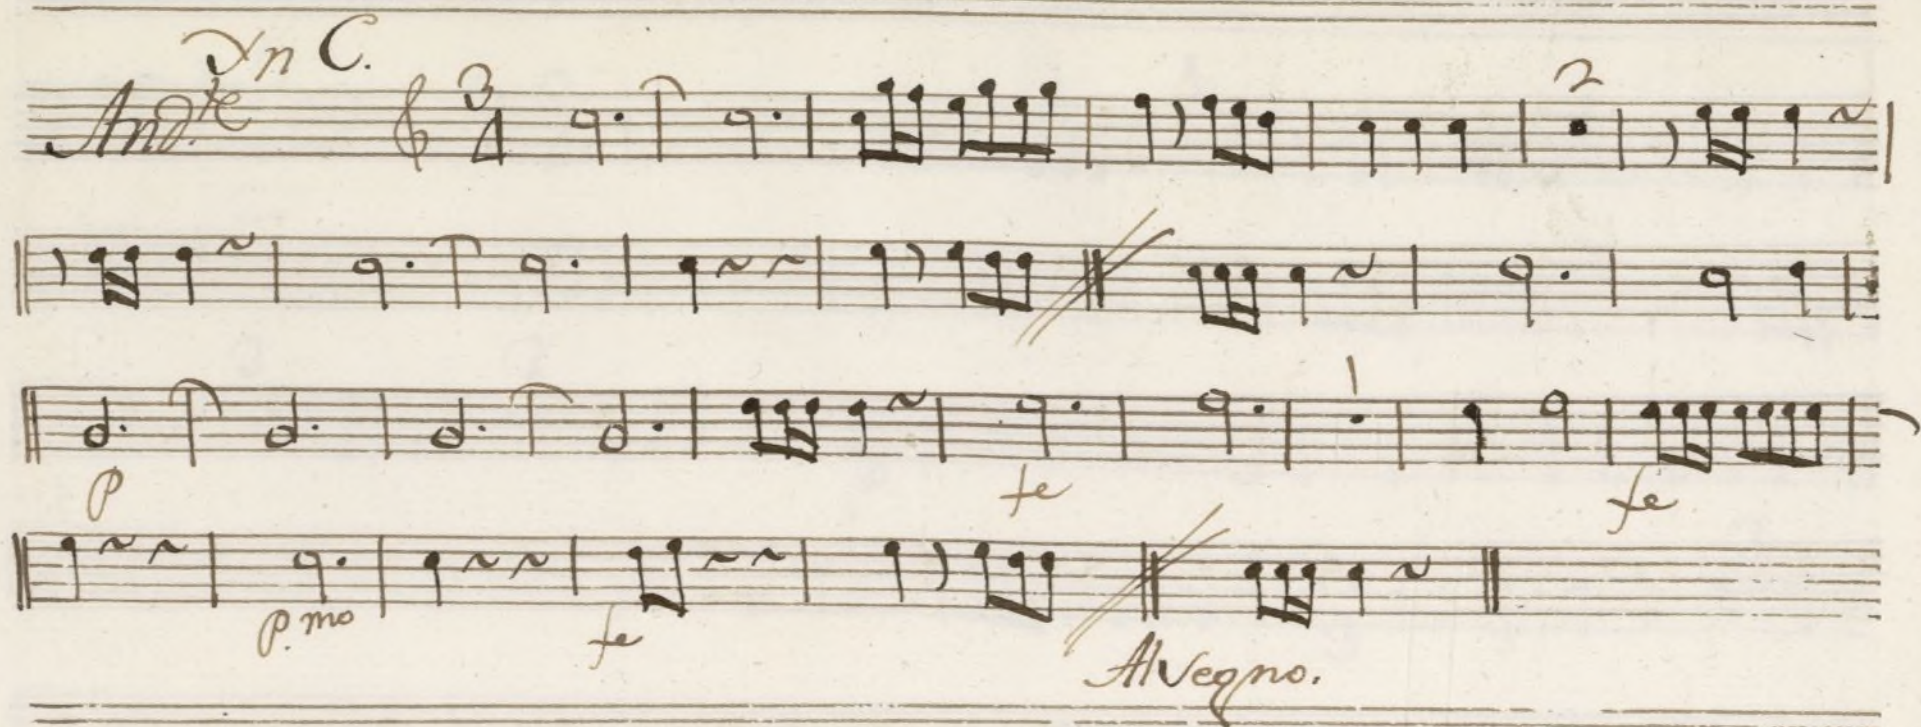 In C.
And.te 3 4 2
p fe 1 fe
p.mo fe
Al Segno.